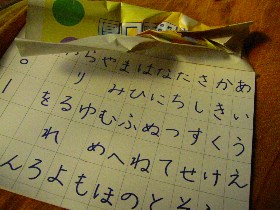 あいうえ
かきくけ
さしすせそ
たちつてと
なにぬねの
はひふへほ
まみむめも
やゆよ
らりるれろ
わをん
。ー